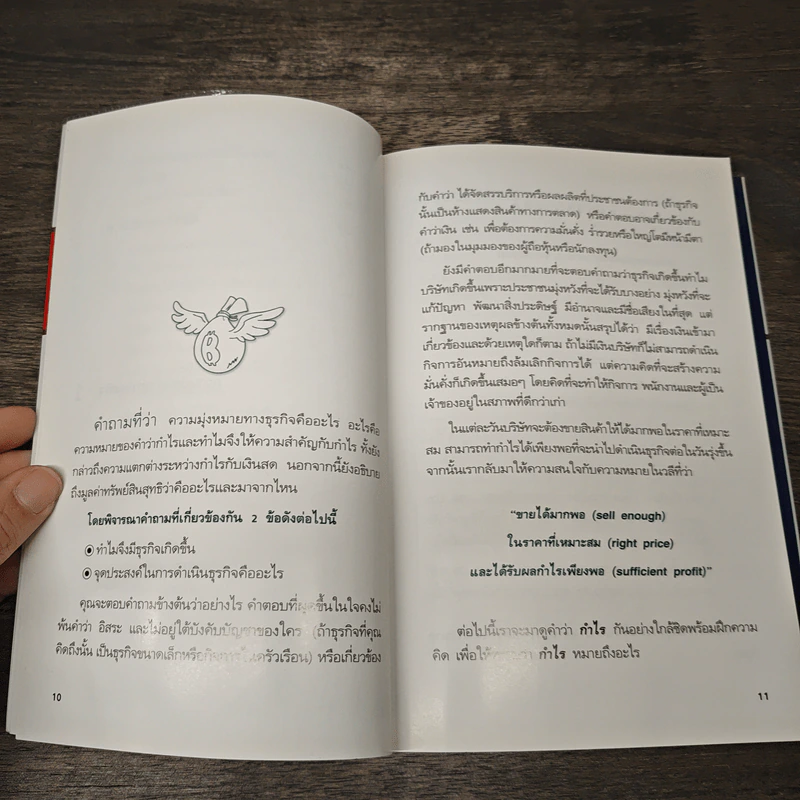 B
คำถามที่ว่า ความมุ่งหมายทางธุรกิจคืออะไร อะไรคือ
ความหมายของคำว่ากำไรและทำไมจึงให้ความสำคัญกับกำไร ทั้งยัง
กล่าวถึงความแตกต่างระหว่างกำไรกับเงินสด นอกจากนี้ยังอธิบาย
ถึงมูลค่าทรัพย์สินสุทธิว่าคืออะไรและมาจากไหน
โดยพิจารณาคำถามที่เกี่ยวข้องกัน 2 ข้อดังต่อไปนี้
ทำไมจึงมีธุรกิจเกิดขึ้น
จุดประสงค์ในการดำเนินธุรกิจคืออะไร
คุณจะตอบคำถามข้างต้นว่าอย่างไร คำตอบที่ผุดขึ้นในใจคงไม่
พ้นคำว่า อิสระ และไม่อยู่ใต้บังคับบัญชาของใคร (ถ้าธุรกิจที่คุณ
คิดถึงนั้น เป็นธุรกิจขนาดเล็กหรือกิจการในครัวเรือน) หรือเกี่ยวข้อง
10
กับคำว่า ได้จัดสรรบริการหรือผลผลิตที่ประชาชนต้องการ (ถ้าธุรกิจ
นั้นเป็นห้างแสดงสินค้าทางการตลาด) หรือคำตอบอาจเกี่ยวข้องกับ
คำว่าเงิน เช่น เพื่อต้องการความมั่นคั่ง ร่ำรวยหรือใหญ่โตมีหน้ามีตา
(ถ้ามองในมุมมองของผู้ถือหุ้นหรือนักลงทุน)
ยังมีคำตอบอีกมากมายที่จะตอบคำถามว่าธุรกิจเกิดขึ้นทำไม
บริษัทเกิดขึ้นเพราะประชาชนมุ่งหวังที่จะได้รับบางอย่าง มุ่งหวังที่จะ
แก้ปัญหา พัฒนาสิ่งประดิษฐ์ มีอำนาจและมีชื่อเสียงในที่สุด แต่
รากฐานของเหตุผลข้างต้นทั้งหมดนั้นสรุปได้ว่า มีเรื่องเงินเข้ามา
เกี่ยวข้องและด้วยเหตุใดก็ตาม ถ้าไม่มีเงินบริษัทก็ไม่สามารถดำเนิน
กิจการอันหมายถึงล้มเลิกกิจการได้ แต่ความคิดที่จะสร้างความ
มั่นคั่งก็เกิดขึ้นเสมอๆ โดยคิดที่จะทำให้กิจการ พนักงานและผู้เป็น
เจ้าของอยู่ในสภาพที่ดีกว่าเก่า
ในแต่ละวันบริษัทจะต้องขายสินค้าให้ได้มากพอในราคาที่เหมาะ
สม สามารถทำกำไรได้เพียงพอที่จะนำไปดำเนินธุรกิจต่อในวันรุ่งขึ้น
จากนั้นเรากลับมาให้ความสนใจกับความหมายในวลีที่ว่า
"ขายได้มากพอ (sell enough)
ในราคาที่เหมาะสม (right price)
และได้รับผลกำไรเพียงพอ (sufficient profit)"
ต่อไปนี้เราจะมาดูคำว่า กำไร กันอย่างใกล้ชิดพร้อมฝึกความ
คิด เพื่อให้ กำไร หมายถึงอะไร
11